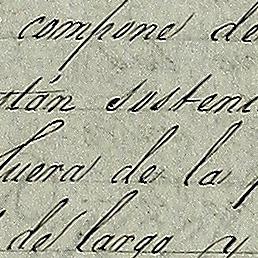 compone de
están sosteni
fuera de la
de largo y